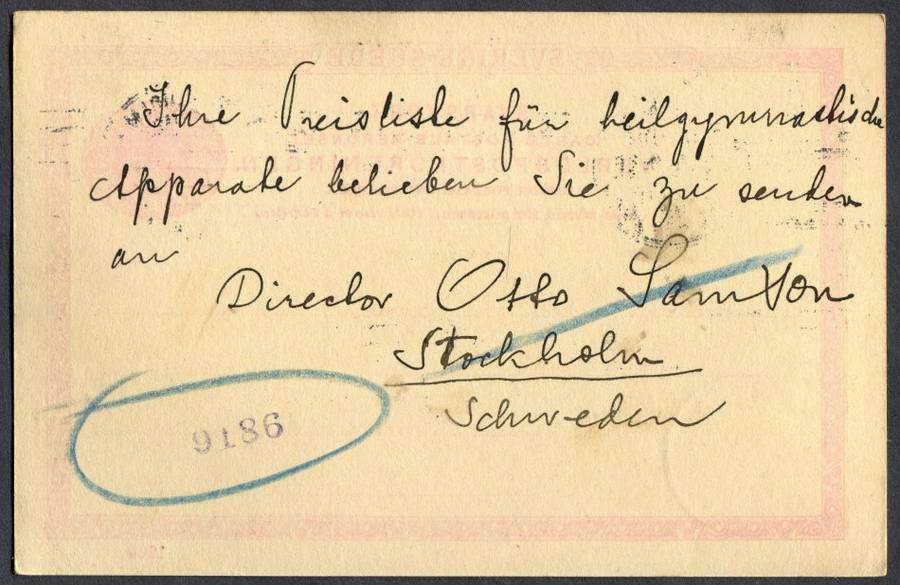 Ihre Preisliste für heilgymnastische
Apparate belieben Sie zu senden
an
Director Otto Samson
Stockholm
Schweden
9186